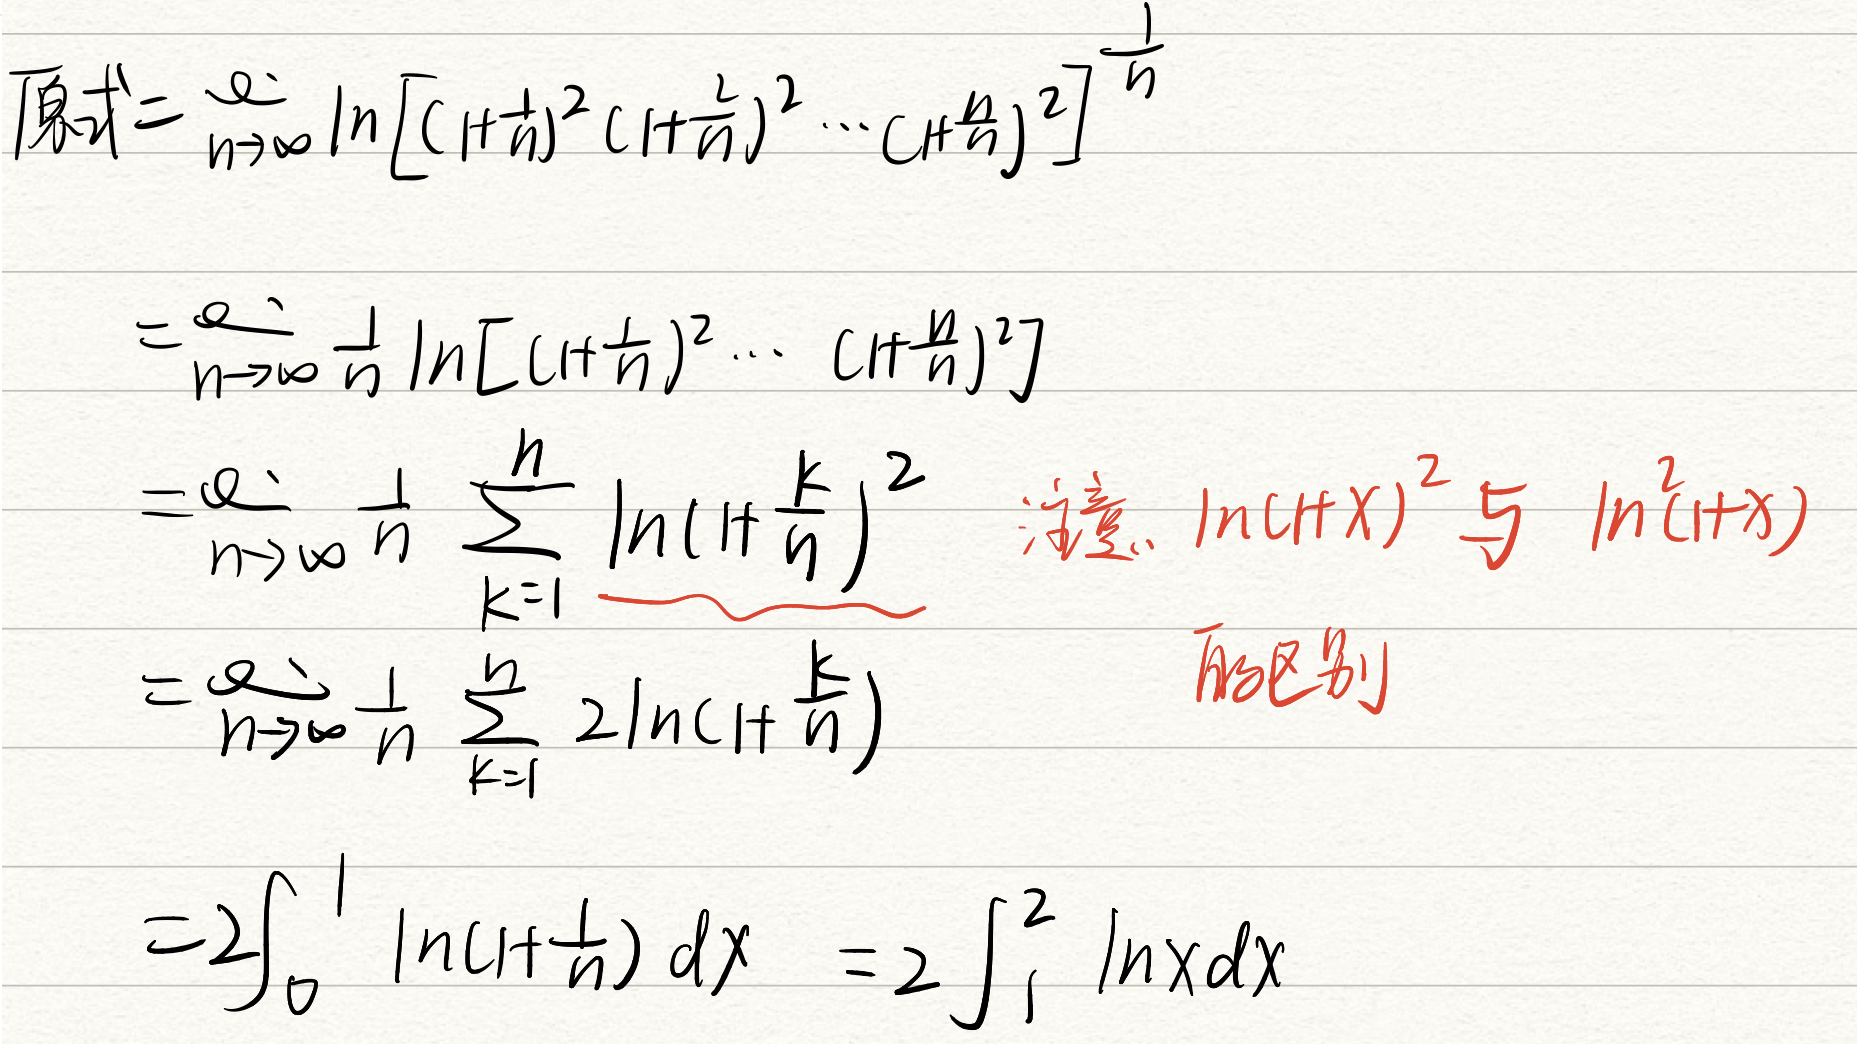 原式 = lim n→∞ ln[(1+1/n)^2 (1+2/n)^2 ⋯ (1+n/n)^2]^(1/n)
= lim n→∞ 1/n ln[(1+1/n)^2 ⋯ (1+n/n)^2]
= lim n→∞ 1/n ∑_{k=1}^{n} ln(1+k/n)^2 注意 ln(1+x)^2 与 ln^2(1+x)
的区别
= lim n→∞ 1/n ∑_{k=1}^{n} 2ln(1+k/n)
= 2∫_0^1 ln(1+1/n) dx = 2∫_1^2 lnx dx